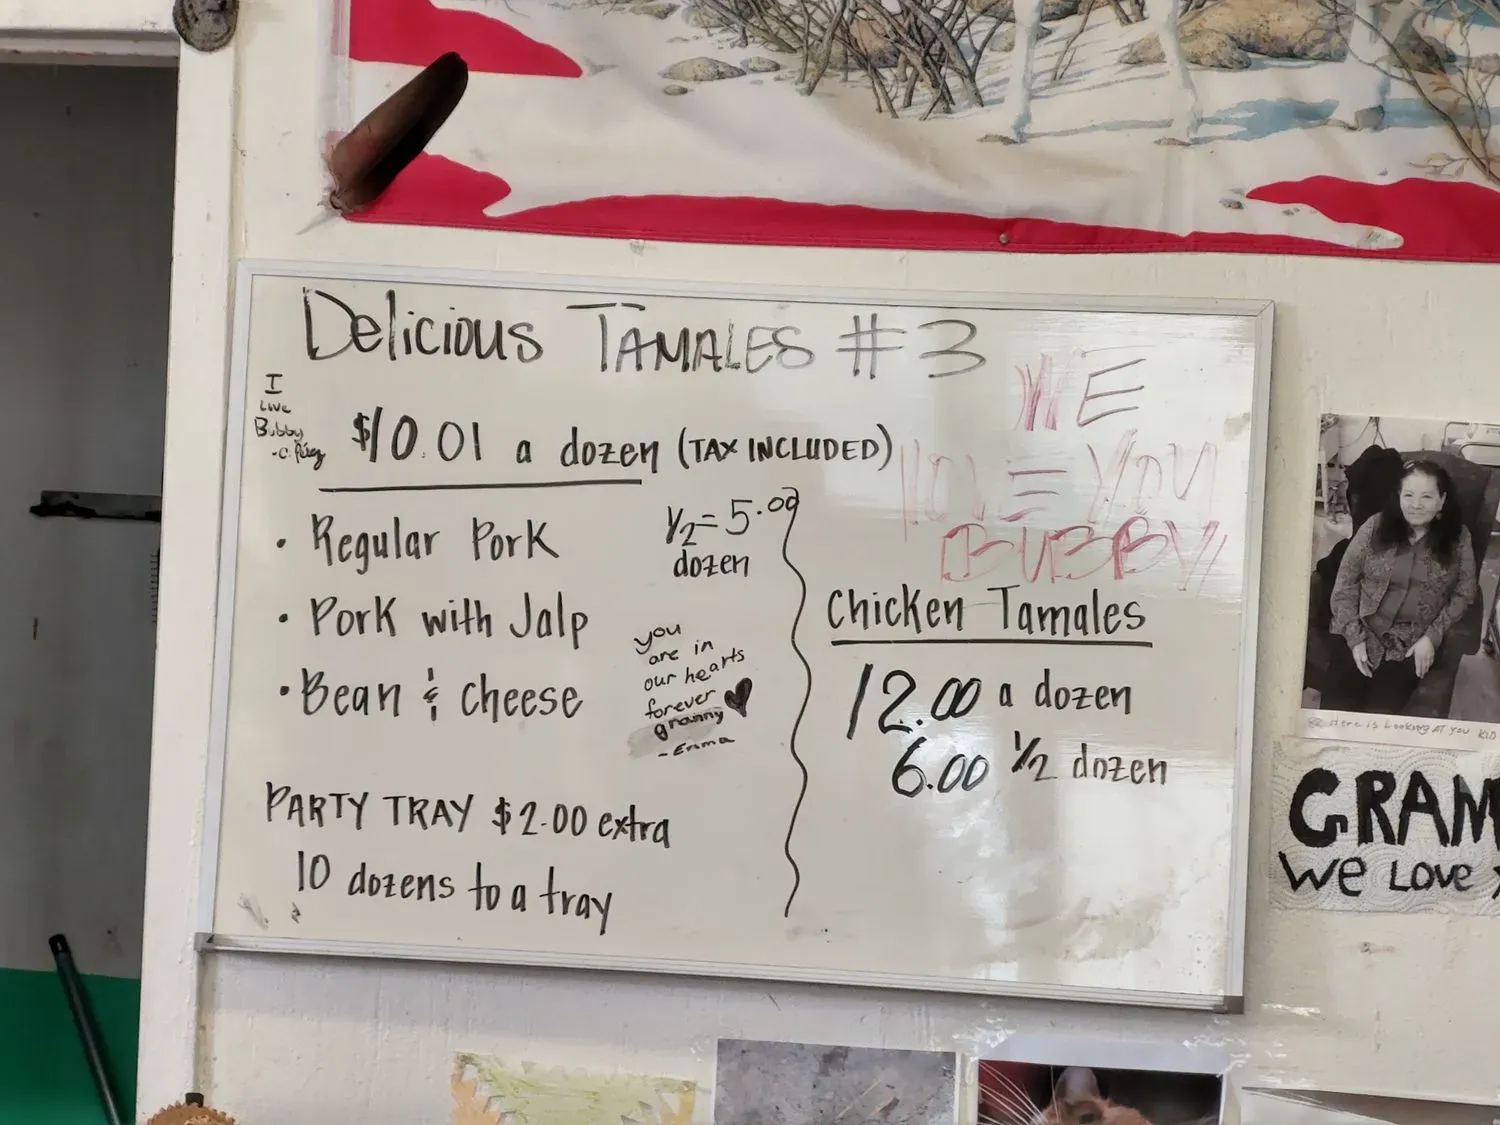 Delicious TAMALES #3
WE
LOVE YOU
BUBBY
I
Love
Bubby
$10.01 a dozen (TAX INCLUDED)
• Regular Pork
1/2 = 5.00
dozen
• Pork with Jalp
• Bean & cheese
you
are in
our hearts
forever
granny
- Emma
PARTY TRAY $2.00 extra
10 dozens to a tray
Chicken Tamales
12.00 a dozen
6.00 1/2 dozen
Here is Looking AT you KID
GRAM
WE LOVE